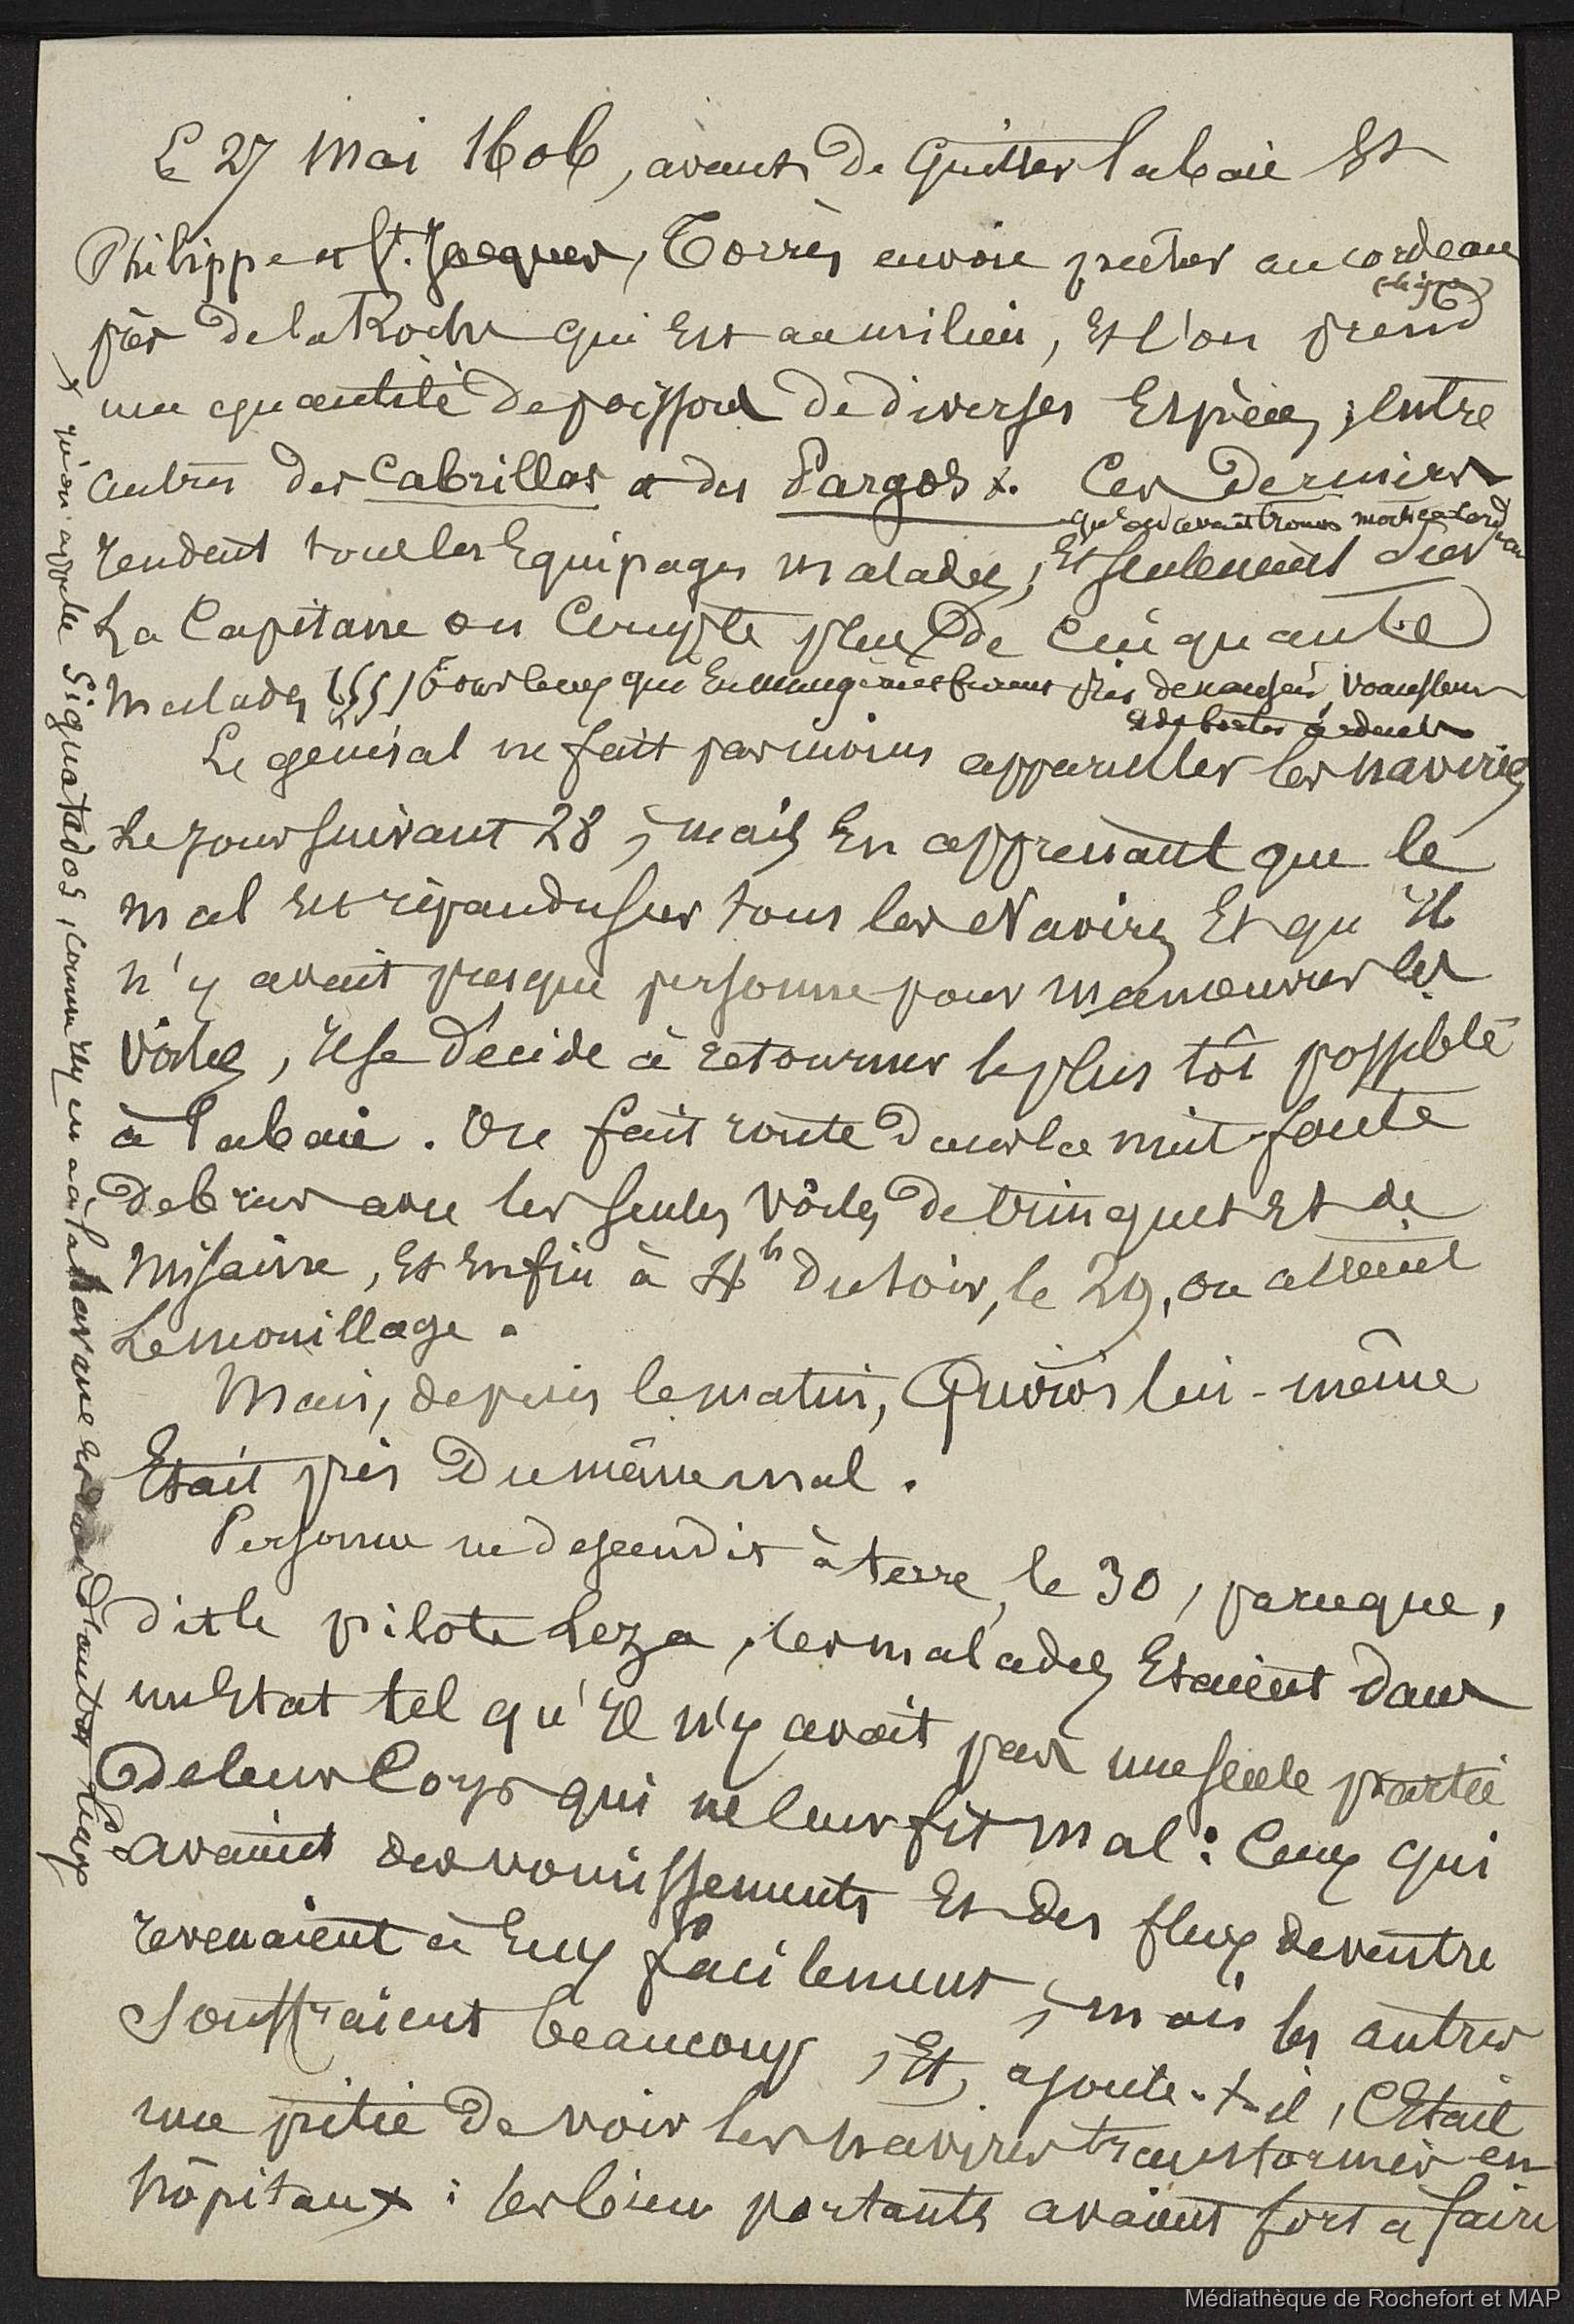 Le 27 Mai 1606, avant de quitter la baie St
Philippe et St. Jacques, Torrès envoie pêcher au cordeau
près de la Roche qui est au milieu, et l'on prend
une quantité de poissons de diverses Espèces, entre
autres des Cabrillas et des Pargos x. Ces derniers
qu'on avait trouvés morts à bord
rendent tous les Equipages malades, Et seulement sur
La Capitane on Compte plus de Cinquante
Malades tous ceux qui en mangèrent furent pris de nausées, vomissements
Le général ne fait pas moins appareiller les navires
Le jour suivant 28, mais En apprenant que le
mal est répandu sur tous les Navires Et qu'il
n'y avait presque personne pour manœuvrer les
Voiles, il se décide à retourner le plus tôt possible
à la baie. On fait route dans la nuit faute
de brise avec les seules Voiles de trinquet Et de
Misaine, Et Enfin à 4h du soir, le 29, on atteint
Le mouillage.
Mais, depuis le matin, Quiros lui-même
Etait pris du même mal.
Personne ne descendit à terre, le 30, parceque,
dit le pilote Leza, les malades Etaient dans
un Etat tel qu'il n'y avait pas une seule partie
de leur Corps qui ne leur fit mal : Ceux qui
avaient des vomissements Et des flux de ventre
revenaient à Eux facilement, mais les autres
souffraient beaucoup, Et, ajoute-t-il, C'Etait
une pitié de voir les navires transformés en
hôpitaux : les bien portants avaient fort à faire
x qu'on appelle Siguatados, comme il y en a à la Havane et dans d'autres lieux
Médiathèque de Rochefort et MAP